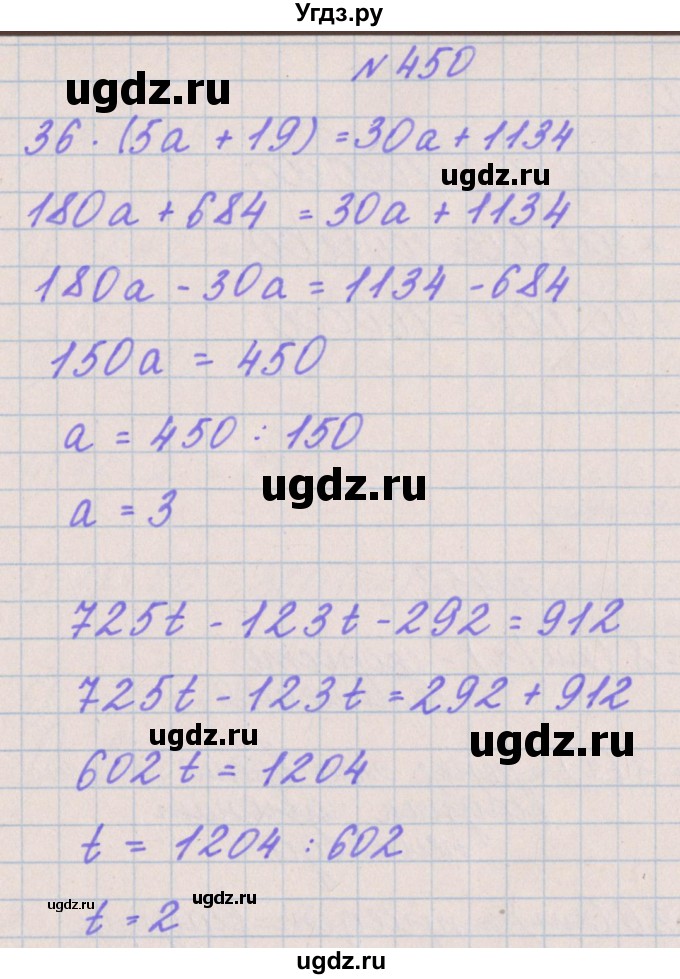 Угдз.ру
№ 450
ugdz.ru
36 · (5a + 19) = 30a + 1134
ugdz.ru
180a + 684 = 30a + 1134
180a - 30a = 1134 - 684
150a = 450
a = 450 : 150
ugdz.ru
a = 3
725t - 123t - 292 = 912
725t - 123t = 292 + 912
ugdz.ru
ugdz.ru
602t = 1204
t = 1204 : 602
ugdz.ru
ugdz.ru
t = 2
ugdz.ru